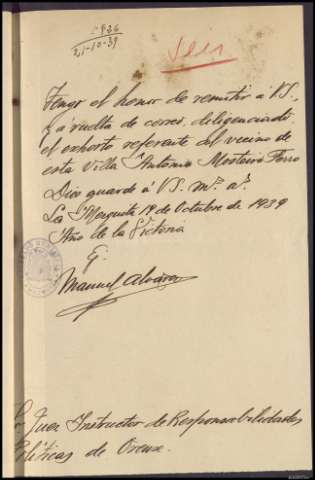 5936
21-10-39
Seis
Tengo el honor de remitir á V.S.,
á vuelta de correo, diligenciado
el exhorto referente del vecino de
esta Villa Antonio Mosteiro Ferro
Dios guarde á V.S. m.s a.s
La 19 de Octubre de 1939
Año de la Victoria
Manuel Alvarez
Sr. Juez Instructor de Responsabilidades
Políticas de Orense.